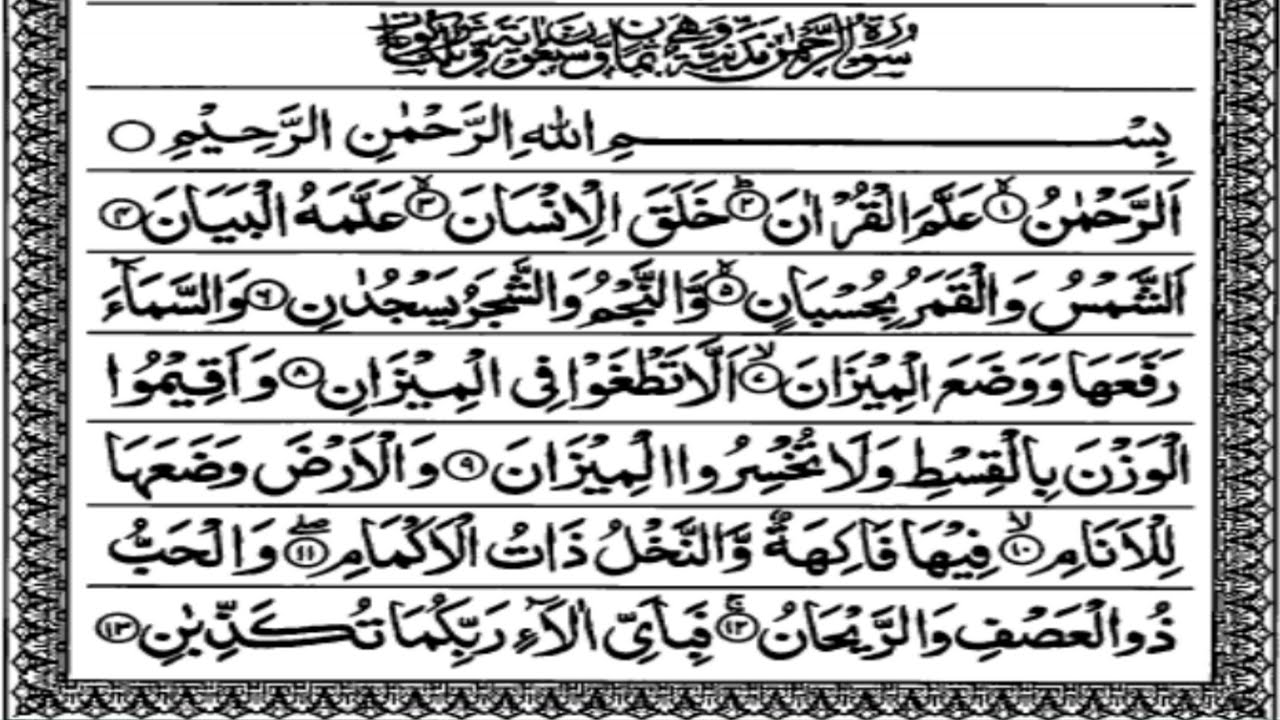 سورة الرحمٰن مدنية وهي ثمان وسبعون اية وثلث ركوعات
بِسْمِ اللهِ الرَّحْمٰنِ الرَّحِيْمِ ○
اَلرَّحْمٰنُ ۙ﴿۱﴾ عَلَّمَ الْقُرْاٰنَ ؕ﴿۲﴾ خَلَقَ الْاِنْسَانَ ۙ﴿۳﴾ عَلَّمَهُ الْبَيَانَ ﴿۴﴾
اَلشَّمْسُ وَالْقَمَرُ بِحُسْبَانٍ ۙ﴿۵﴾ وَّالنَّجْمُ وَالشَّجَرُ يَسْجُدٰنِ ﴿۶﴾ وَالسَّمَآءَ
رَفَعَهَا وَوَضَعَ الْمِيْزَانَ ۙ﴿۷﴾ اَلَّا تَطْغَوْا فِى الْمِيْزَانِ ﴿۸﴾ وَاَقِيْمُوا
الْوَزْنَ بِالْقِسْطِ وَلَا تُخْسِرُوا الْمِيْزَانَ ﴿۹﴾ وَالْاَرْضَ وَضَعَهَا
لِلْاَنَامِ ۙ﴿۱۰﴾ فِيْهَا فَاكِهَةٌ وَّالنَّخْلُ ذَاتُ الْاَكْمَامِ ۖ﴿۱۱﴾ وَالْحَبُّ
ذُو الْعَصْفِ وَالرَّيْحَانُ ۚ﴿۱۲﴾ فَبِاَىِّ اٰلَآءِ رَبِّكُمَا تُكَذِّبٰنِ ﴿۱۳﴾